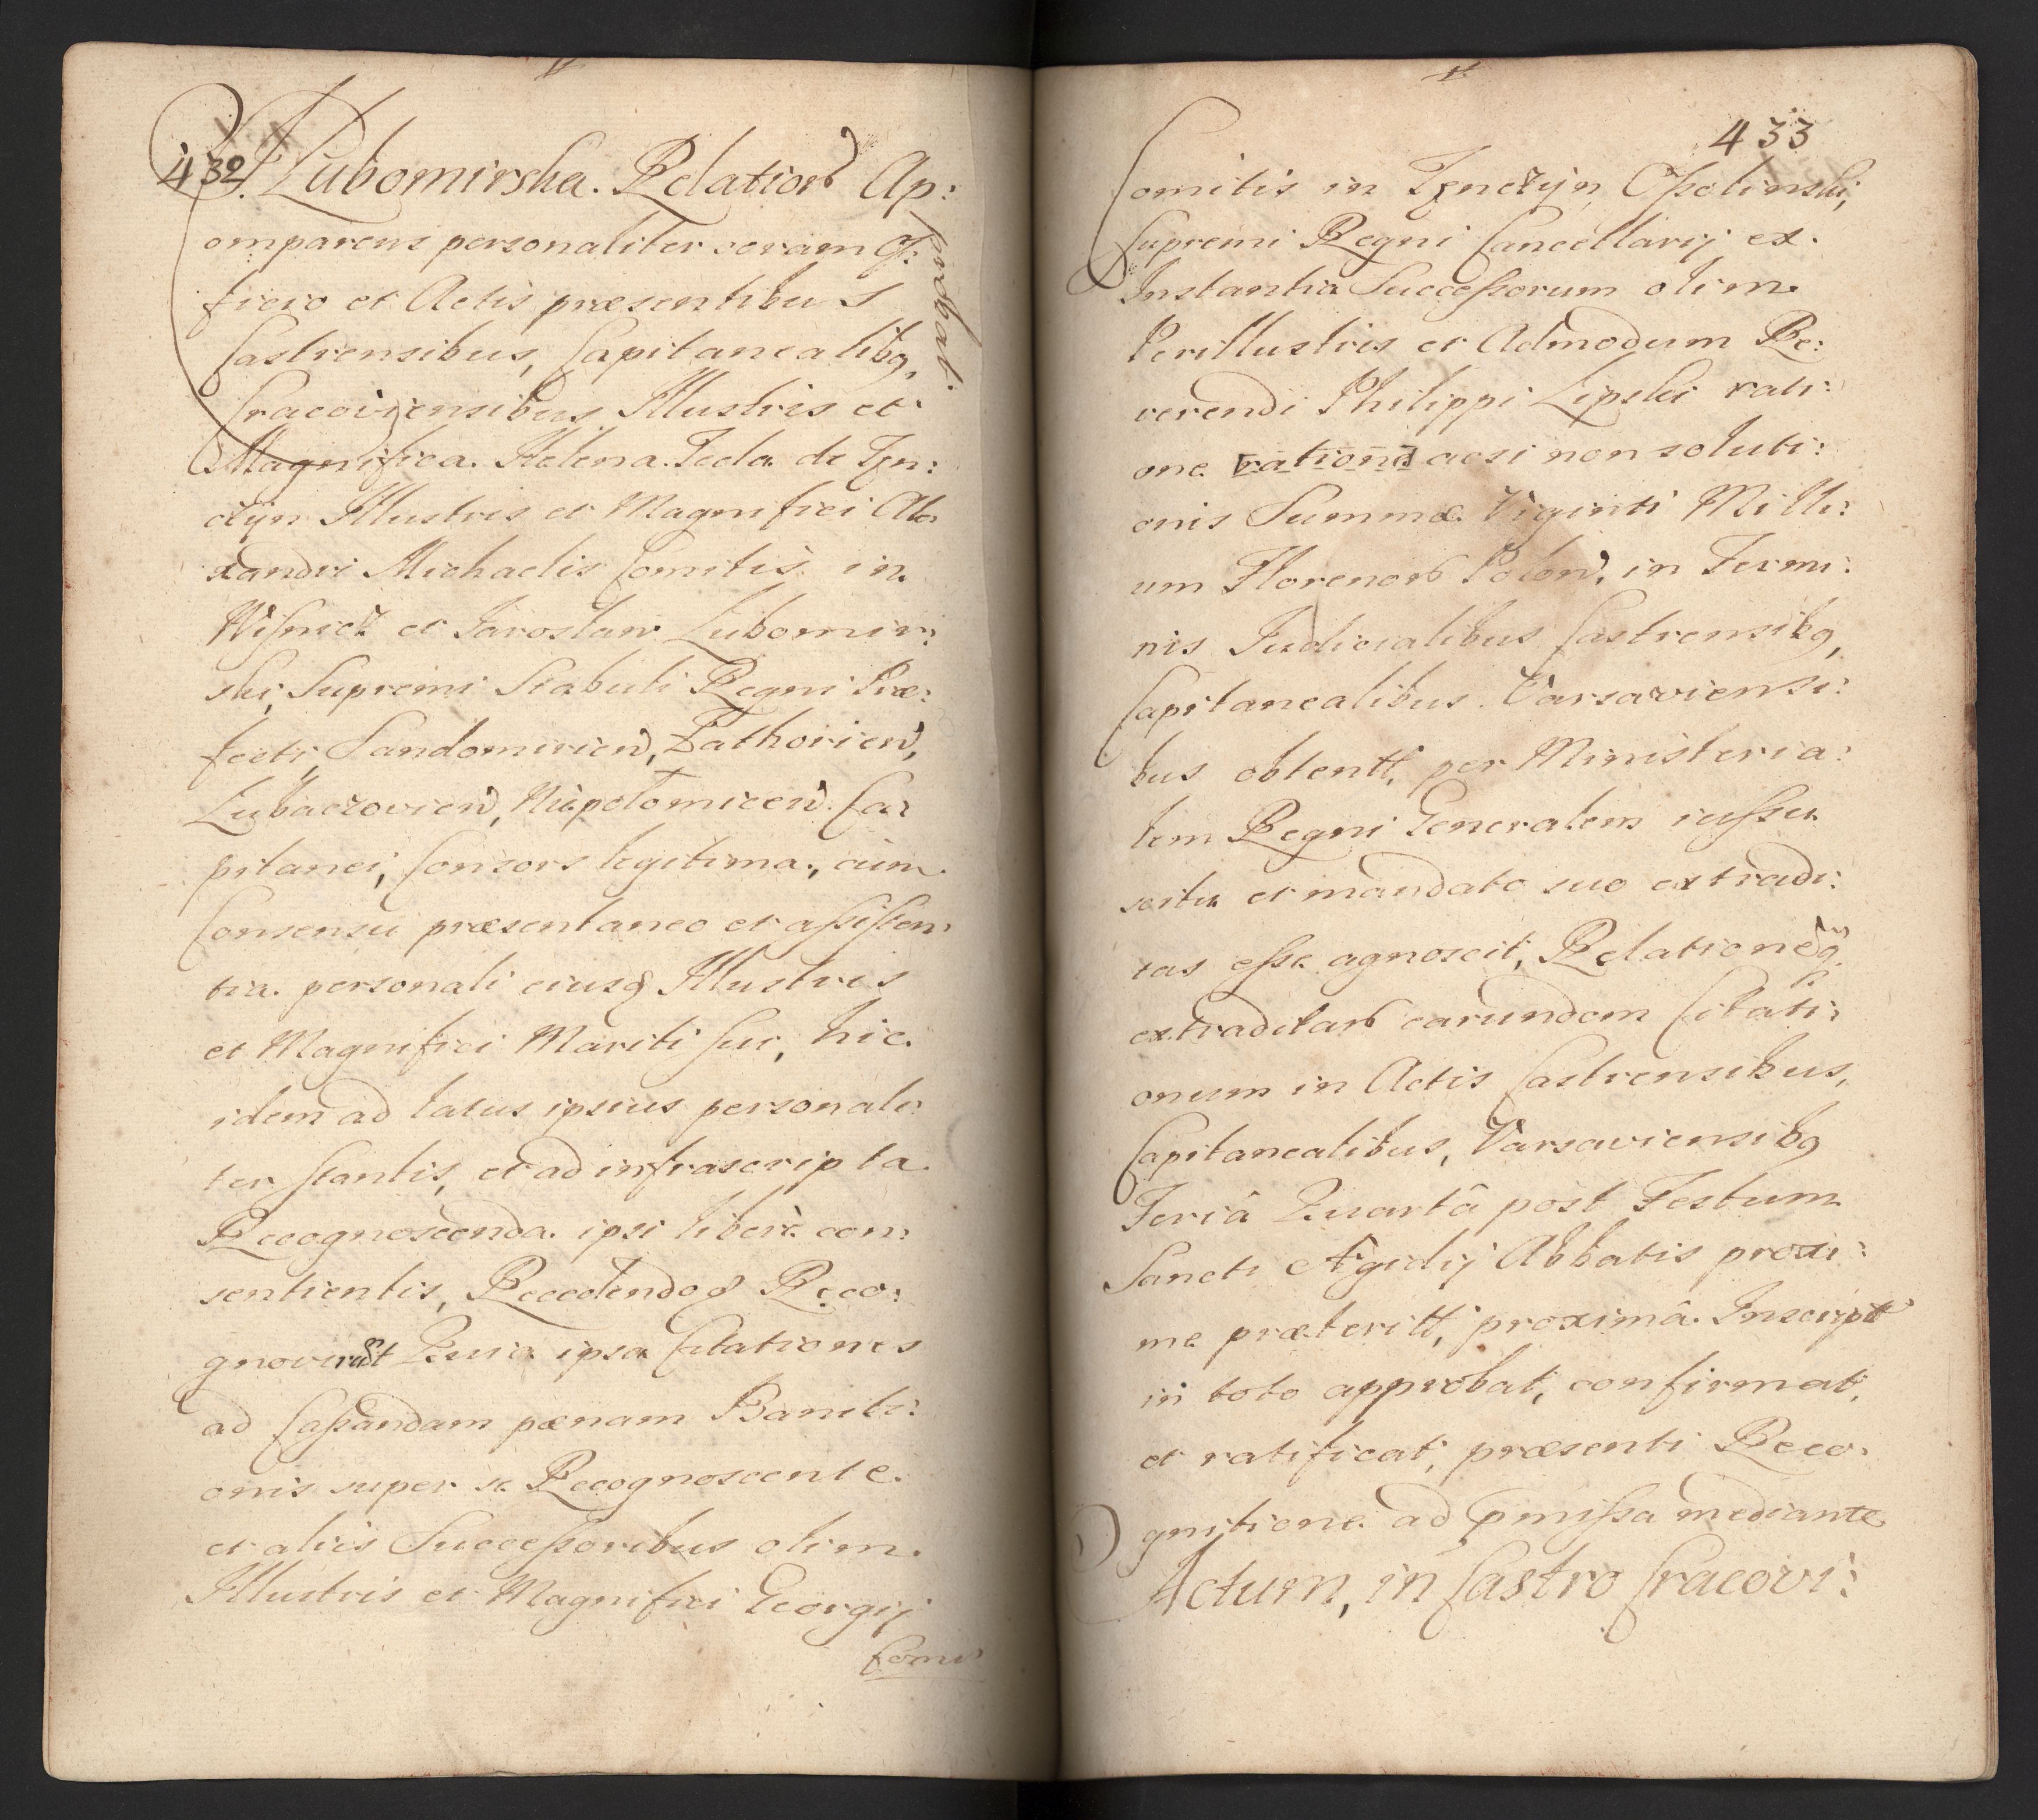 432
Lubomirska. Relation Ap:
probat.
Comparens personaliter coram Of:
ficio et Actis præsentibus
Castrensibus, Capitanealibq,
Cracoviensibus Illustris et
Magnifica. Helena. Tecla de Tęn:
czyn Illustris et Magnifici Ale:
xandri Michaelis Comitis in
Wisnicz et Jaroslaw Lubomir:
ski, Supremi Stabuli Regni Præ:
fecti, Sandomirien, Zathorien,
Lubaczovien, Niepolomicen. Ca:
pitanei, Consors legitima, cum
Consensu præsentaneo et assisten:
tia personali eiusq Illustris
et Magnifici Mariti sui, hic
idem ad latus ipsius personali:
ter stantis, et ad infrascripta
Recognoscenda. ipsi liberè con:
sentientis, Recedendoq Reco:
gnovit Quia ipsa Citationes
ad Cassandam pænam Baniti:
onis super se Recognoscente
et aliis Successoribus olim
Illustris et Magnifici Georgij
Comi
433
Comitis in Tęnczyn Ossolinski,
Supremi Regni Cancellarij ex
Instantia Successorum olim
Perillustris et Admodum Re:
verendi Philippi Lipski rati:
one [ratione] acsi non soluti:
onis Summæ Viginti Milli:
um Florenor Polon, in Termi:
nis Judicialibus Castrensibq,
Capitanealibus Varsaviensi:
bus obtent, per Ministeria:
lem Regni Generalem iussu
scitu et mandato suo extradi:
tas esse agnoscit, Relationeq
extraditar earundem Citati:
onum in Actis Castrensibus,
Capitanealibus, Varsaviensibq
Feriâ Quartâ post Festum
Sancti Ægidij Abbatis proxi:
me præterit, proximâ. Inscript
in toto approbat, confirmat,
et ratificat, præsenti Reco:
gnitione ad pmissa mediante
Actum, in Castro Cracovi: